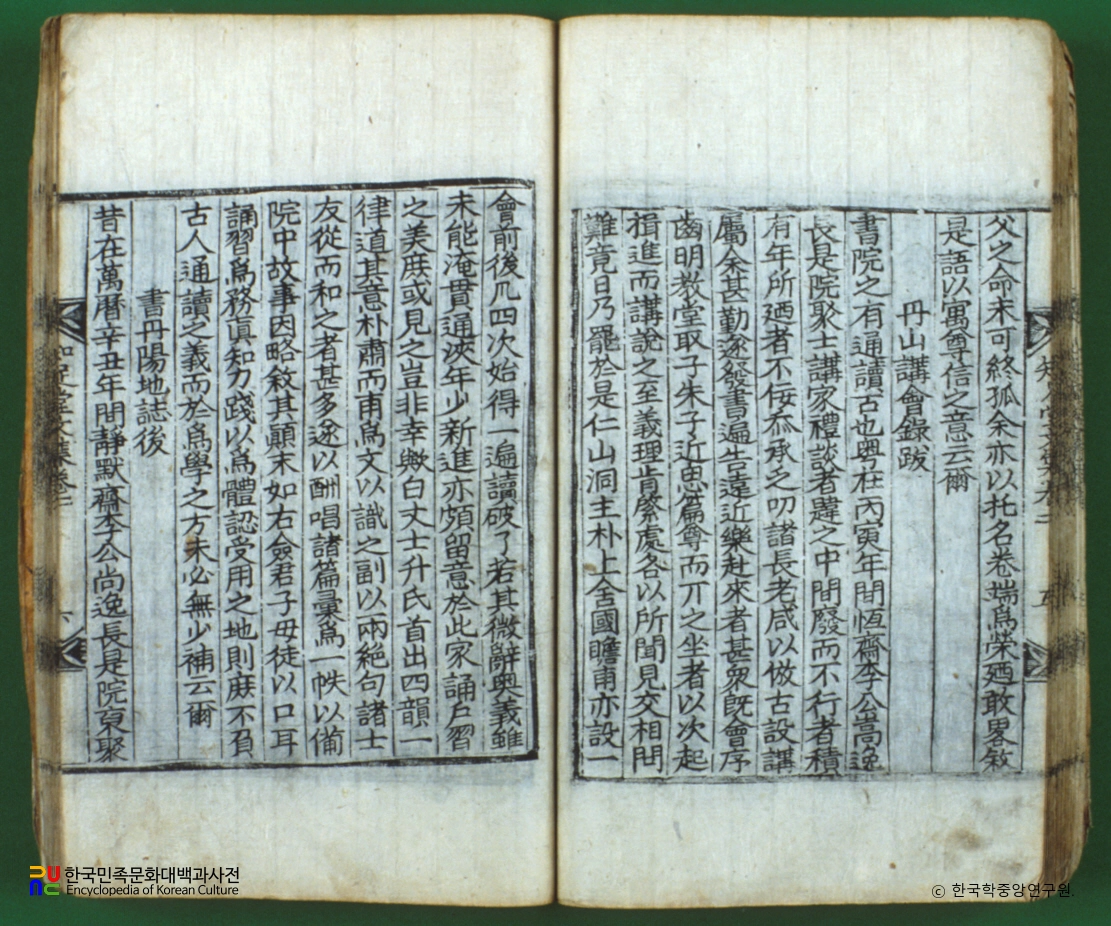 父之命未可終孤余亦以托名卷端爲榮廼敢畧敘
是語以寓尊信之意云爾
丹山講會錄跋
書院之有通讀古也粤在丙寅年間恆齋李公嵩逸
長是院聚士講家禮談者韙之中間廢而不行者積
有年所廼者不佞忝承乏叨諸長老咸以倣古設講
屬余甚勤遂發書遍告遠近樂赴來者甚衆旣會序
齒明教堂取子朱子近思篇尊而丌之坐者以次起
揖進而講說之至義理肯綮處各以所聞見交相問
難竟日乃罷於是仁山洞主朴上舍國瞻甫亦設一
會前後凡四次始得一遍讀破了若其微辭奧義雖
未能淹貫通浹年少新進亦頗留意於此家誦戶習
之美庶或見之豈非幸歟白丈士升氏首出四韻一
律道其意朴肅而甫爲文以識之副以兩絶句諸士
友從而和之者甚多遂以酬唱諸篇彙爲一帙以備
院中故事因略敘其顛末如右僉君子毋徒以口耳
誦習爲務眞知力踐以爲體認受用之地則庶不負
古人通讀之義而於爲學之方未必無少補云爾
書丹陽地誌後
昔在萬曆辛丑年間靜默齋李公尚逸長是院裒聚
한국민족문화대백과사전
Encyclopedia of Korean Culture
ⓒ 한국학중앙연구원.